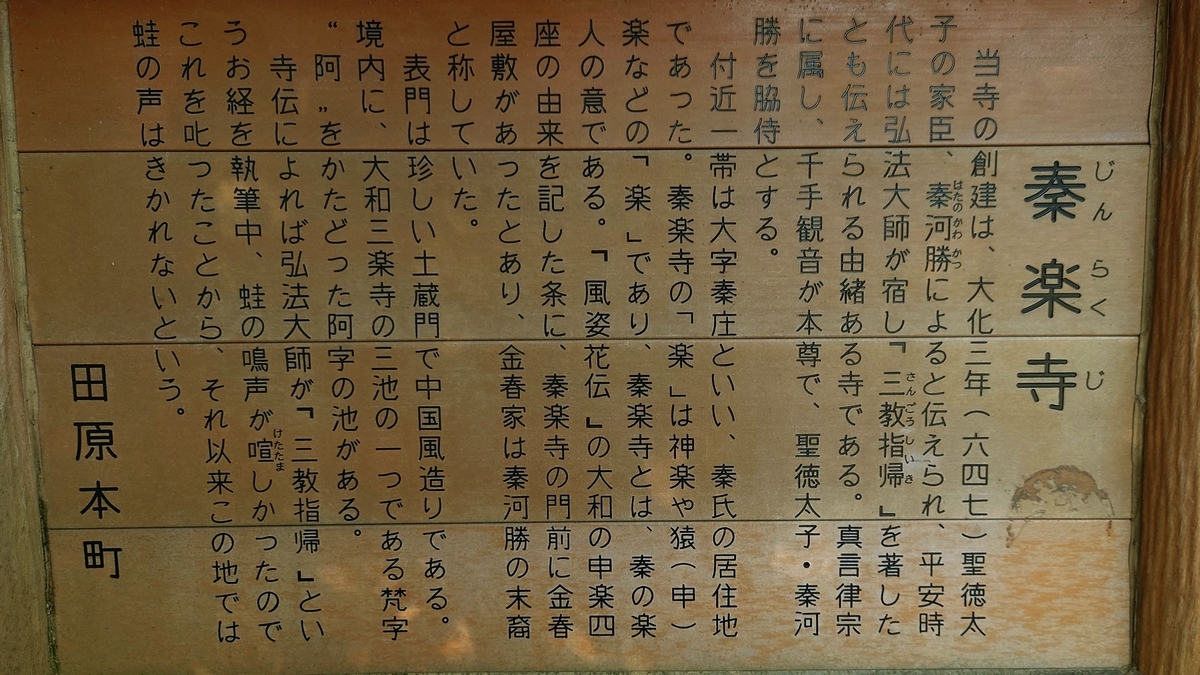 秦楽寺
じんらくじ
当寺の創建は、大化三年(六四七)聖徳太
子の家臣、秦河勝によると伝えられ、平安時
はたのかわかつ
代には弘法大師が宿し「三教指帰」を著した
さんごうしいき
とも伝えられる由緒ある寺である。真言律宗
に属し、千手観音が本尊で、聖徳太子・秦河
勝を脇侍とする。
付近一帯は大字秦庄といい、秦氏の居住地
であった。秦楽寺の「楽」は神楽や猿(申)
楽などの「楽」であり、秦楽寺とは、秦の楽
人の意である。「風姿花伝」の大和の申楽四
座の由来を記した条に、秦楽寺の門前に金春
屋敷があったとあり、金春家は秦河勝の末裔
と称していた。
表門は珍しい土蔵門で中国風造りである。
境内に、大和三楽寺の三池の一つである梵字
“阿”をかたどった阿字の池がある。
寺伝によれば弘法大師が「三教指帰」とい
うお経を執筆中、蛙の鳴声が喧しかったので
けたたま
これを叱ったことから、それ以来この地では
蛙の声はきかれないという。
田原本町